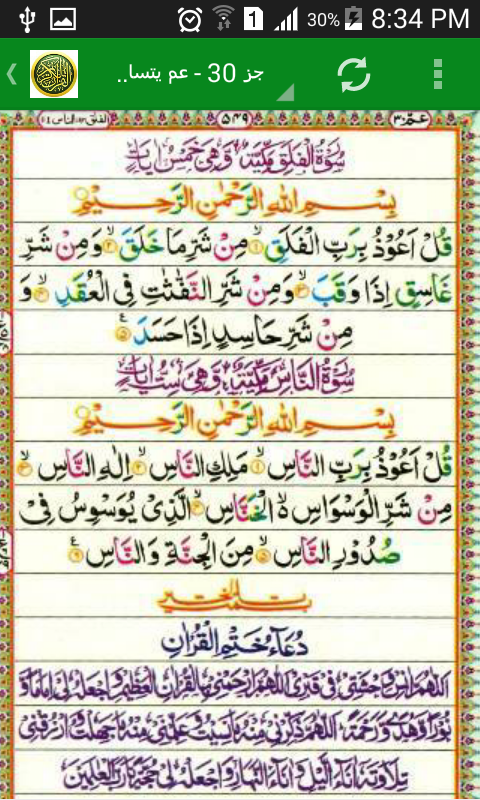 30% 8:34 PM
جز 30 - عم يتسا..
عمّ ٣٠ ٥٤٩ الفلق ١١٣ الناس ١١٤
سُوْرَةُ الْفَلَقِ مَكِّيَّةٌ وَّهِيَ خَمْسُ اٰيَاتٍ
بِسْمِ اللهِ الرَّحْمٰنِ الرَّحِيْمِ
قُلْ اَعُوْذُ بِرَبِّ الْفَلَقِ ۙ۱ مِنْ شَرِّ مَا خَلَقَ ۙ۲ وَمِنْ شَرِّ
غَاسِقٍ اِذَا وَقَبَ ۙ۳ وَمِنْ شَرِّ النَّفّٰثٰتِ فِي الْعُقَدِ ۙ۴ وَ
مِنْ شَرِّ حَاسِدٍ اِذَا حَسَدَ ۵
سُوْرَةُ النَّاسِ مَكِّيَّةٌ وَّهِيَ سِتُّ اٰيَاتٍ
بِسْمِ اللهِ الرَّحْمٰنِ الرَّحِيْمِ
قُلْ اَعُوْذُ بِرَبِّ النَّاسِ ۙ۱ مَلِكِ النَّاسِ ۙ۲ اِلٰهِ النَّاسِ ۙ۳
مِنْ شَرِّ الْوَسْوَاسِ ەۙ الْخَنَّاسِ ۙ۴ الَّذِيْ يُوَسْوِسُ فِيْ
صُدُوْرِ النَّاسِ ۙ۵ مِنَ الْجِنَّةِ وَالنَّاسِ ۶
دُعَآءُ خَتْمِ الْقُرْاٰنِ
اَللّٰهُمَّ اٰنِسْ وَحْشَتِيْ فِيْ قَبْرِيْ اَللّٰهُمَّ ارْحَمْنِيْ بِالْقُرْاٰنِ الْعَظِيْمِ وَاجْعَلْهُ لِيْ اِمَامًا وَّ
نُوْرًا وَّهُدًى وَّرَحْمَةً اَللّٰهُمَّ ذَكِّرْنِيْ مِنْهُ مَا نَسِيْتُ وَعَلِّمْنِيْ مِنْهُ مَا جَهِلْتُ وَارْزُقْنِيْ
تِلَاوَتَهٗ اٰنَآءَ الَّيْلِ وَاٰنَآءَ النَّهَارِ وَاجْعَلْهُ لِيْ حُجَّةً يَّا رَبَّ الْعٰلَمِيْنَ